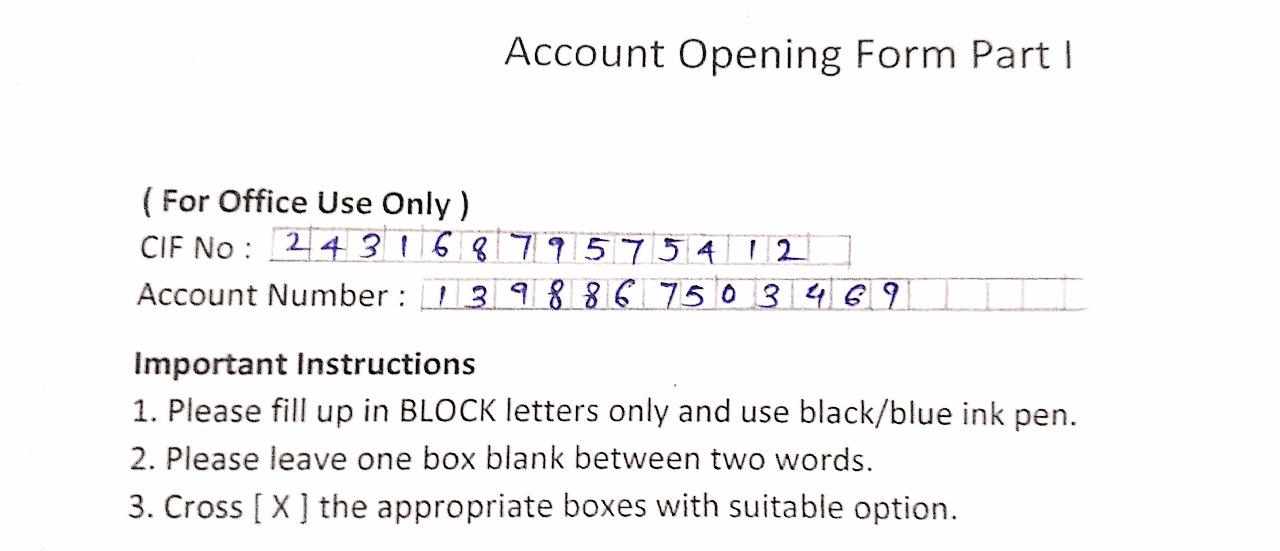 Account Opening Form Part I
( For Office Use Only )
CIF No : 24316879575412
Account Number : 1398867503469
Important Instructions
1. Please fill up in BLOCK letters only and use black/blue ink pen.
2. Please leave one box blank between two words.
3. Cross [ X ] the appropriate boxes with suitable option.